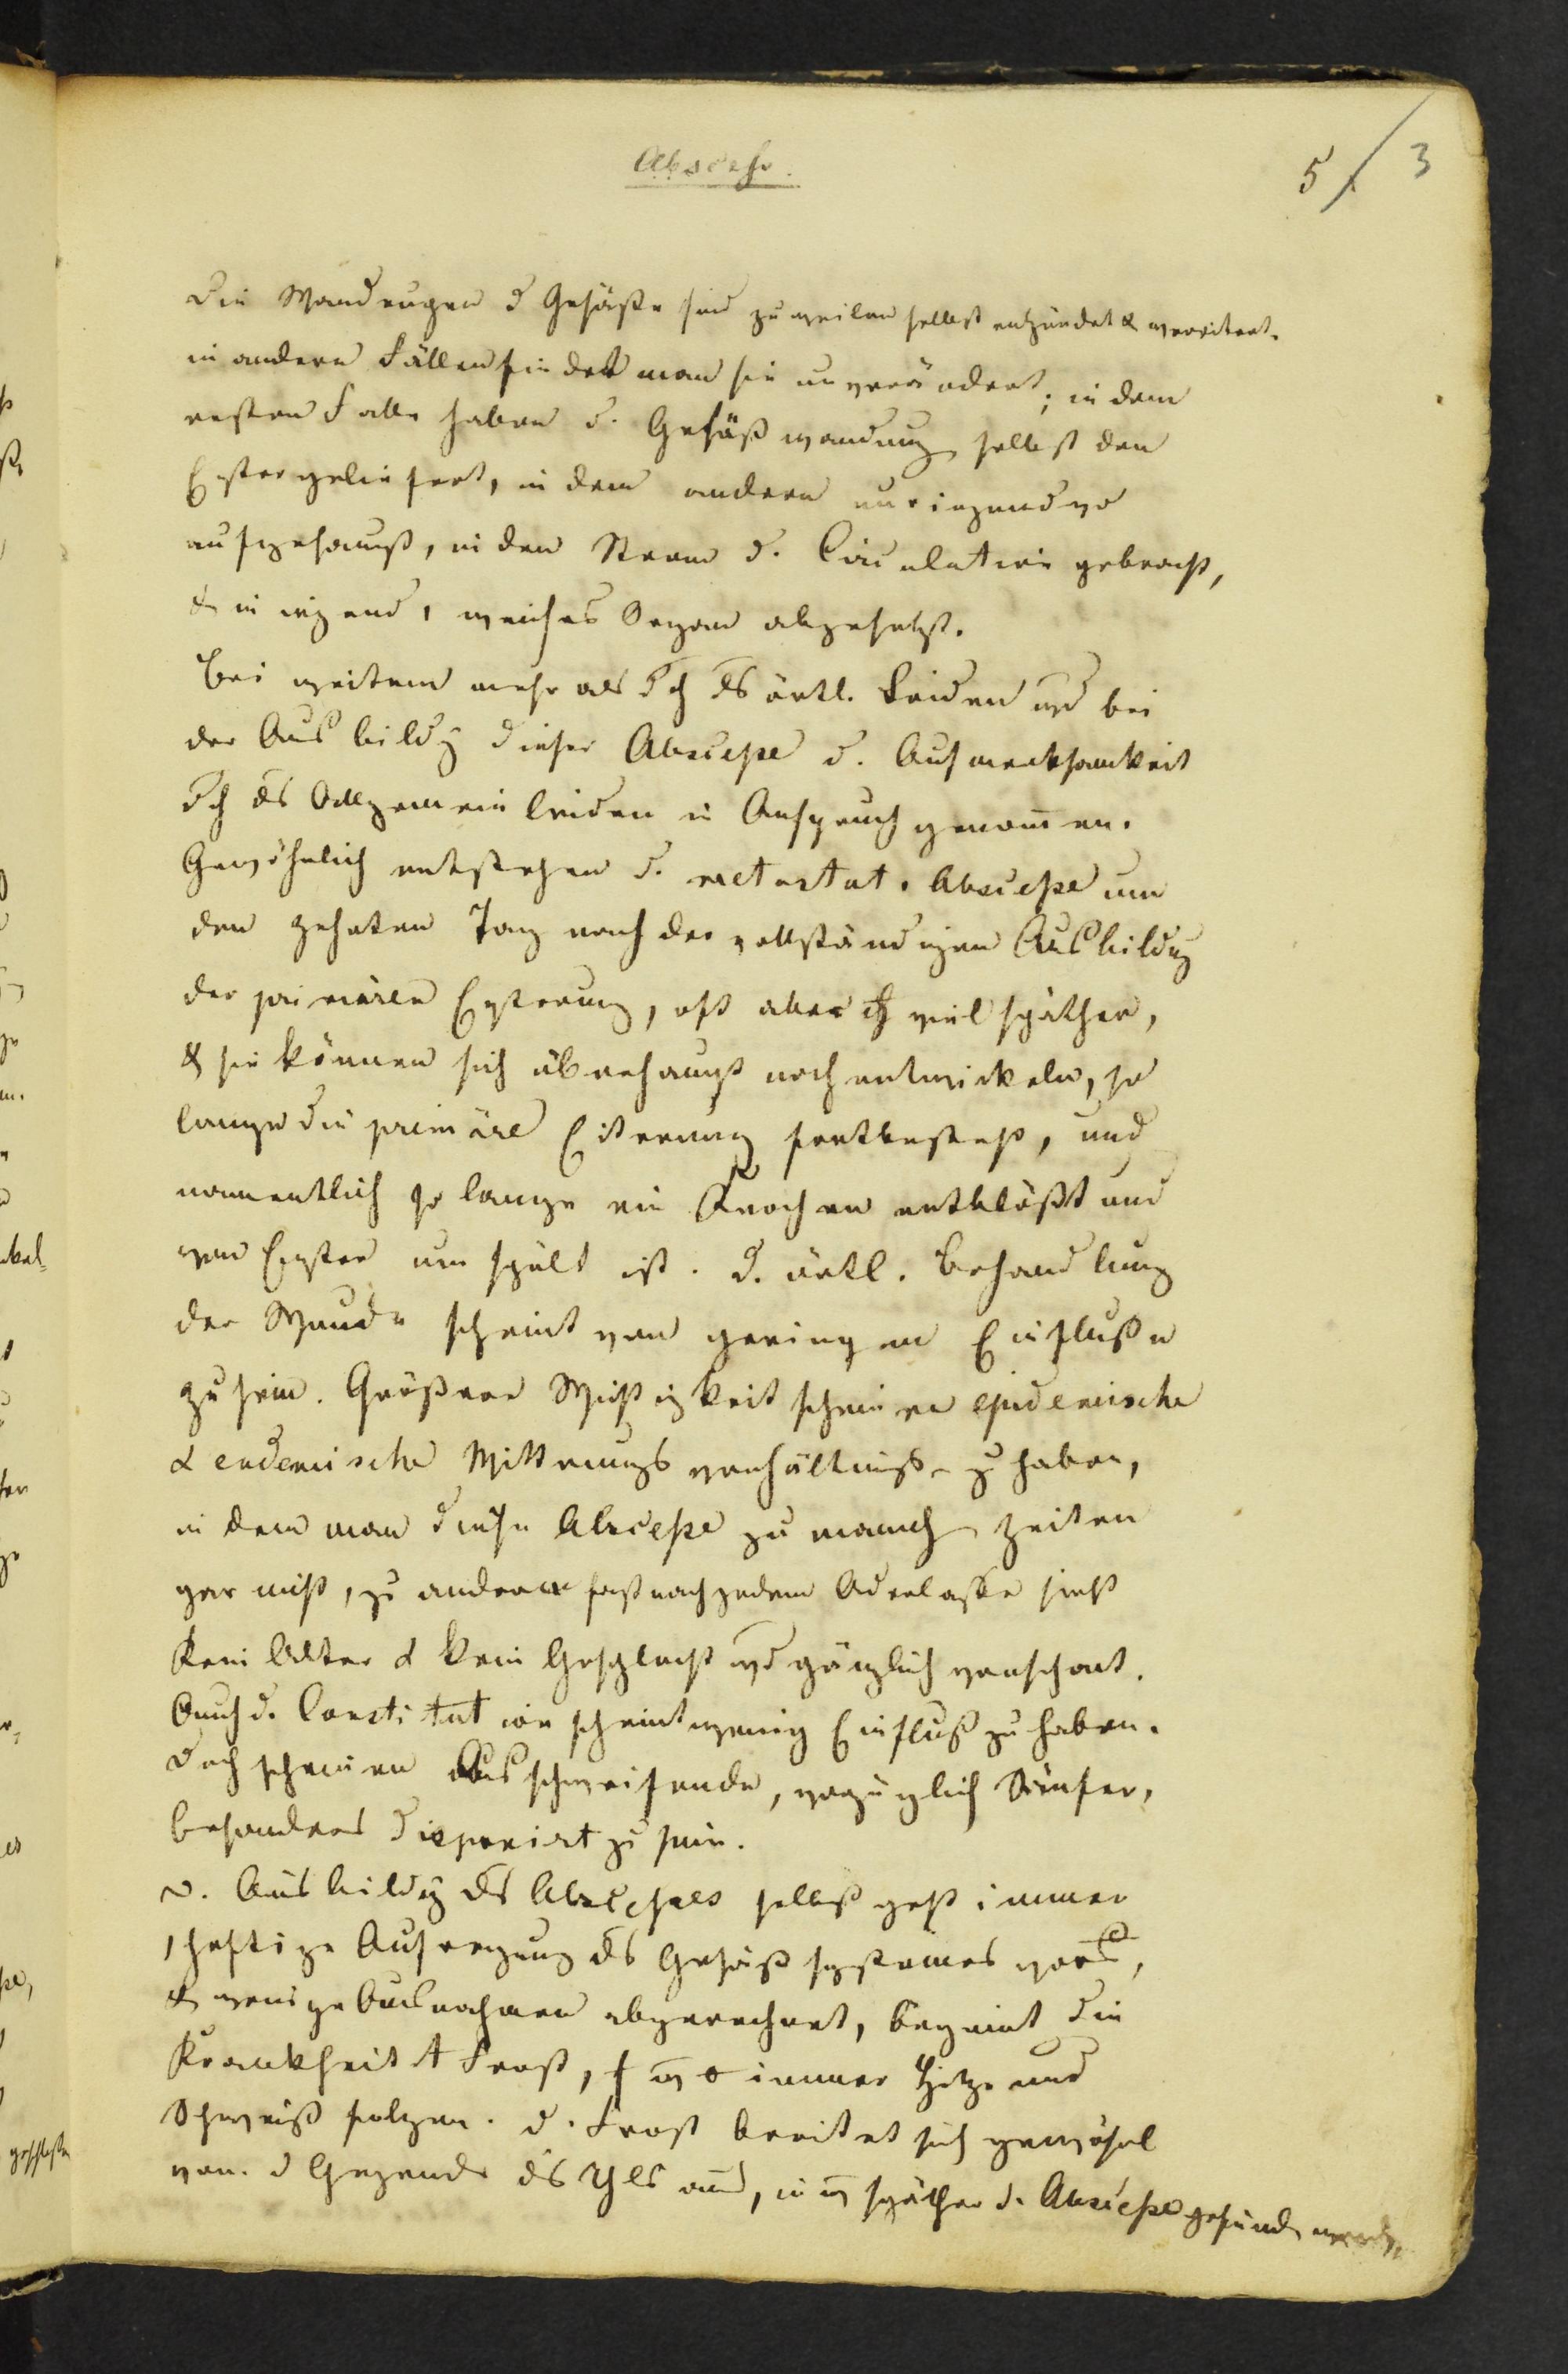 Abscesse.
5/. 3
Die Wandungen d Gefäße sind zuweilen selbst entzündet & vereitert.
in andern Fällen findet man sie unverändert; in dem
ersten Falle haben d. Gefäßwandung selbst den
Eyter geliefert, in dem andern nur irgendwo
aufgehäuft, in den Strom d. Circulation gebracht,
& in irgend 1 weiches Organ abgesetzt.
Bei weitem mehr als dch ds örtl. Leiden wd bei
der Ausbildg dieser Abscesse d. Aufmerksamkeit
dch ds Allgemeinleiden in Anspruch genommen.
Gewöhnlich entstehen d. metastat. Abscesse um
den zehnten Tag nach der vollständigen Ausbildg
der primären Eyterung, oft aber viel später,
& sie können sich überhaupt noch entwickeln, so
lange die primäre Eiterung fortbesteht, und
namentlich so lange ein Knochen entblößt und
von Eyter umspült ist. D. örtl. Behandlung
der Wunde scheint von geringem Einflusse
zu sein. Größere Wichtigkeit scheinen epidemische
& endemische Witterungsverhältnisse zu haben,
in dem man diese Abscesse zu manch Zeiten
gar nicht, zu andern fast nach jedem Aderlasse sieht
Kein Alter & kein Geschlecht wd gänzlich verschont.
Auch d. Constitution scheint wenig Einfluß zu haben.
Doch scheinen Ausschweifende, vorzüglich Säufer,
besonders disponirt zu sein.
D. Ausbildg ds Abscesses selbst geht immer
1 heftige Aufregung ds Gefäßsystemes
& wenige Ausnahmen abgerechnet, beginnt die
Krankheit Frost, immer Hitze und
Schweiß folgen. D. Frost breitet sich gewöhnl
von d Gegend ds aus, in später d. Abscesse gefund